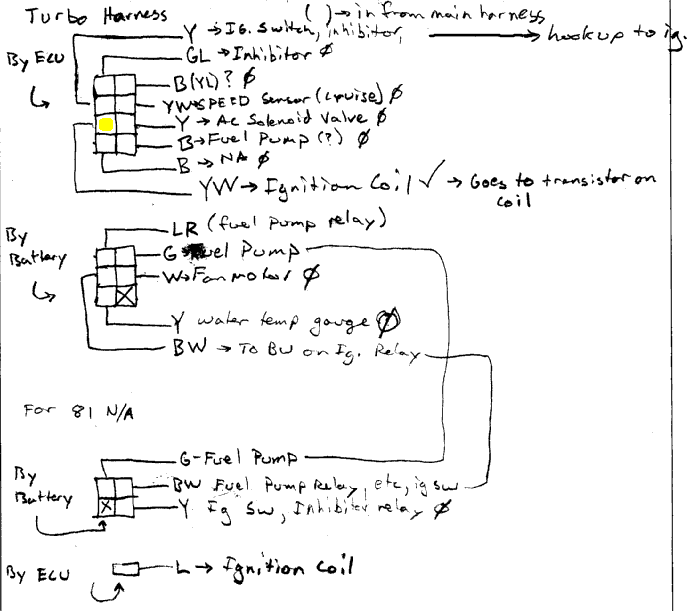 Turbo Harness
( ) → in from main harness
Y → IG. Switch, inhibitor, → hookup to ig.
GL → Inhibitor Ø
By ECU
B(YL)? Ø
YW → SPEED Sensor (cruise) Ø
Y → AC Solenoid Valve Ø
B → Fuel Pump (?) Ø
B → NA Ø
YW → Ignition Coil ✓ → Goes to transistor on coil
LR (fuel pump relay)
By Battery
G → Fuel Pump
W → Fan motor Ø
Y water temp gauge Ø
BW → To BW on Ig. Relay
For 81 N/A
G-Fuel Pump
By Battery
BW Fuel Pump Relay, etc, ig sw
X
Y Ig Sw, Inhibitor relay Ø
By ECU
L → Ignition Coil